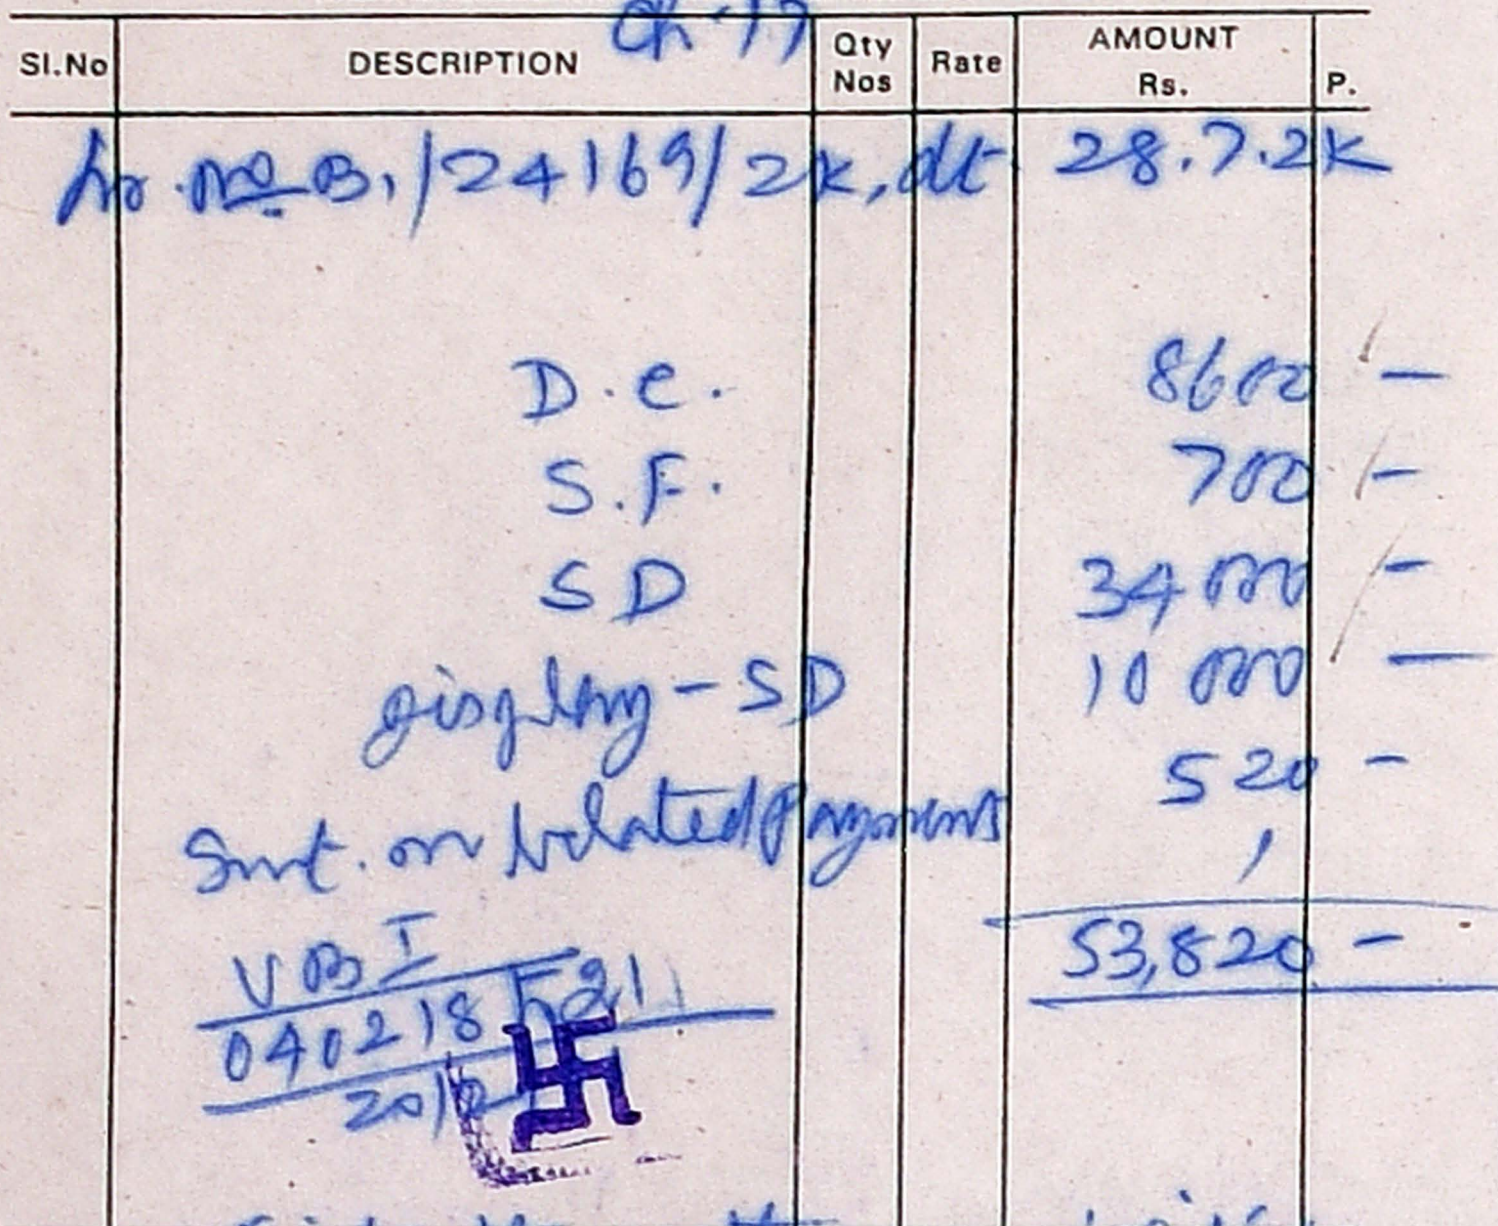 Sl.No DESCRIPTION Qty Nos Rate AMOUNT Rs. P.
Lr. No B1/24169/2K, dt 28.7.2K
D.C. 8600 -
S.F. 700 -
SD 34000 -
display - SD 10000 -
520 -
Int. on belated Payments
53,820 -
V B I
040218